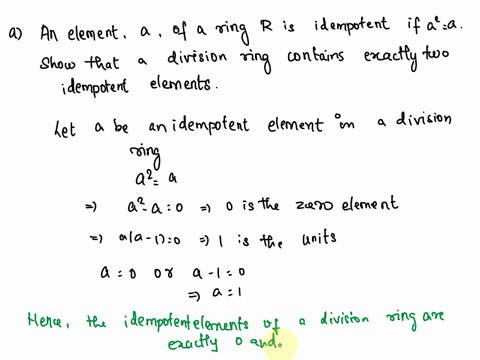 a) An element, a, of a ring R is idempotent if a²=a.
Show that a division ring contains exactly two
idempotent elements.
Let a be an idempotent element in a division
ring
a² = a
⇒ a²-a=0 ⇒ 0 is the zero element
⇒ a(a-1)=0 ⇒ 1 is the units
a = 0 or a -1=0
⇒ a=1
Hence, the idempotent elements of a division ring are
exactly 0 and.